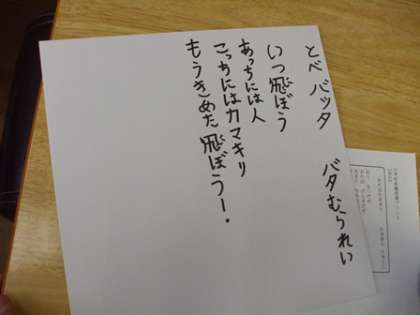 とべ バッタ
バタむられい
いつ飛ぼう
あっちには人
こっちにはカマキリ
もうきめた飛ぼうー!